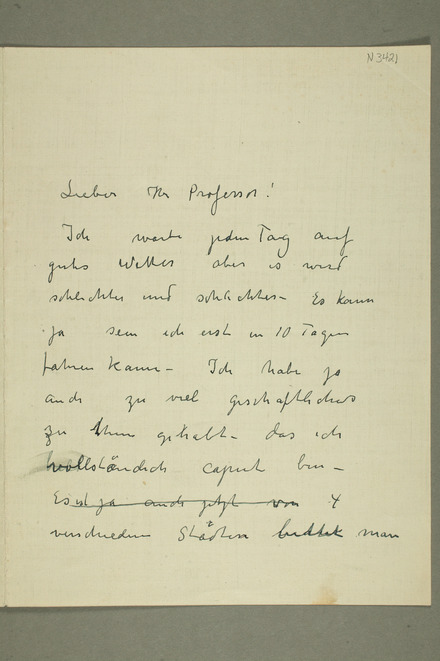 N3421
Lieber Hr Professor!
Ich warte jeden Tag auf
gutes Wetter aber es wird
schlechter und schlechter – Es kann
ja sein ich erst in 10 Tagen
fahren kann – Ich habe ja
auch zu viel geschäftliches
zu thun gehabt – das ich
vollständich caput bin –
Es ist ja auch jetzt von 4
verschiedene Städten man